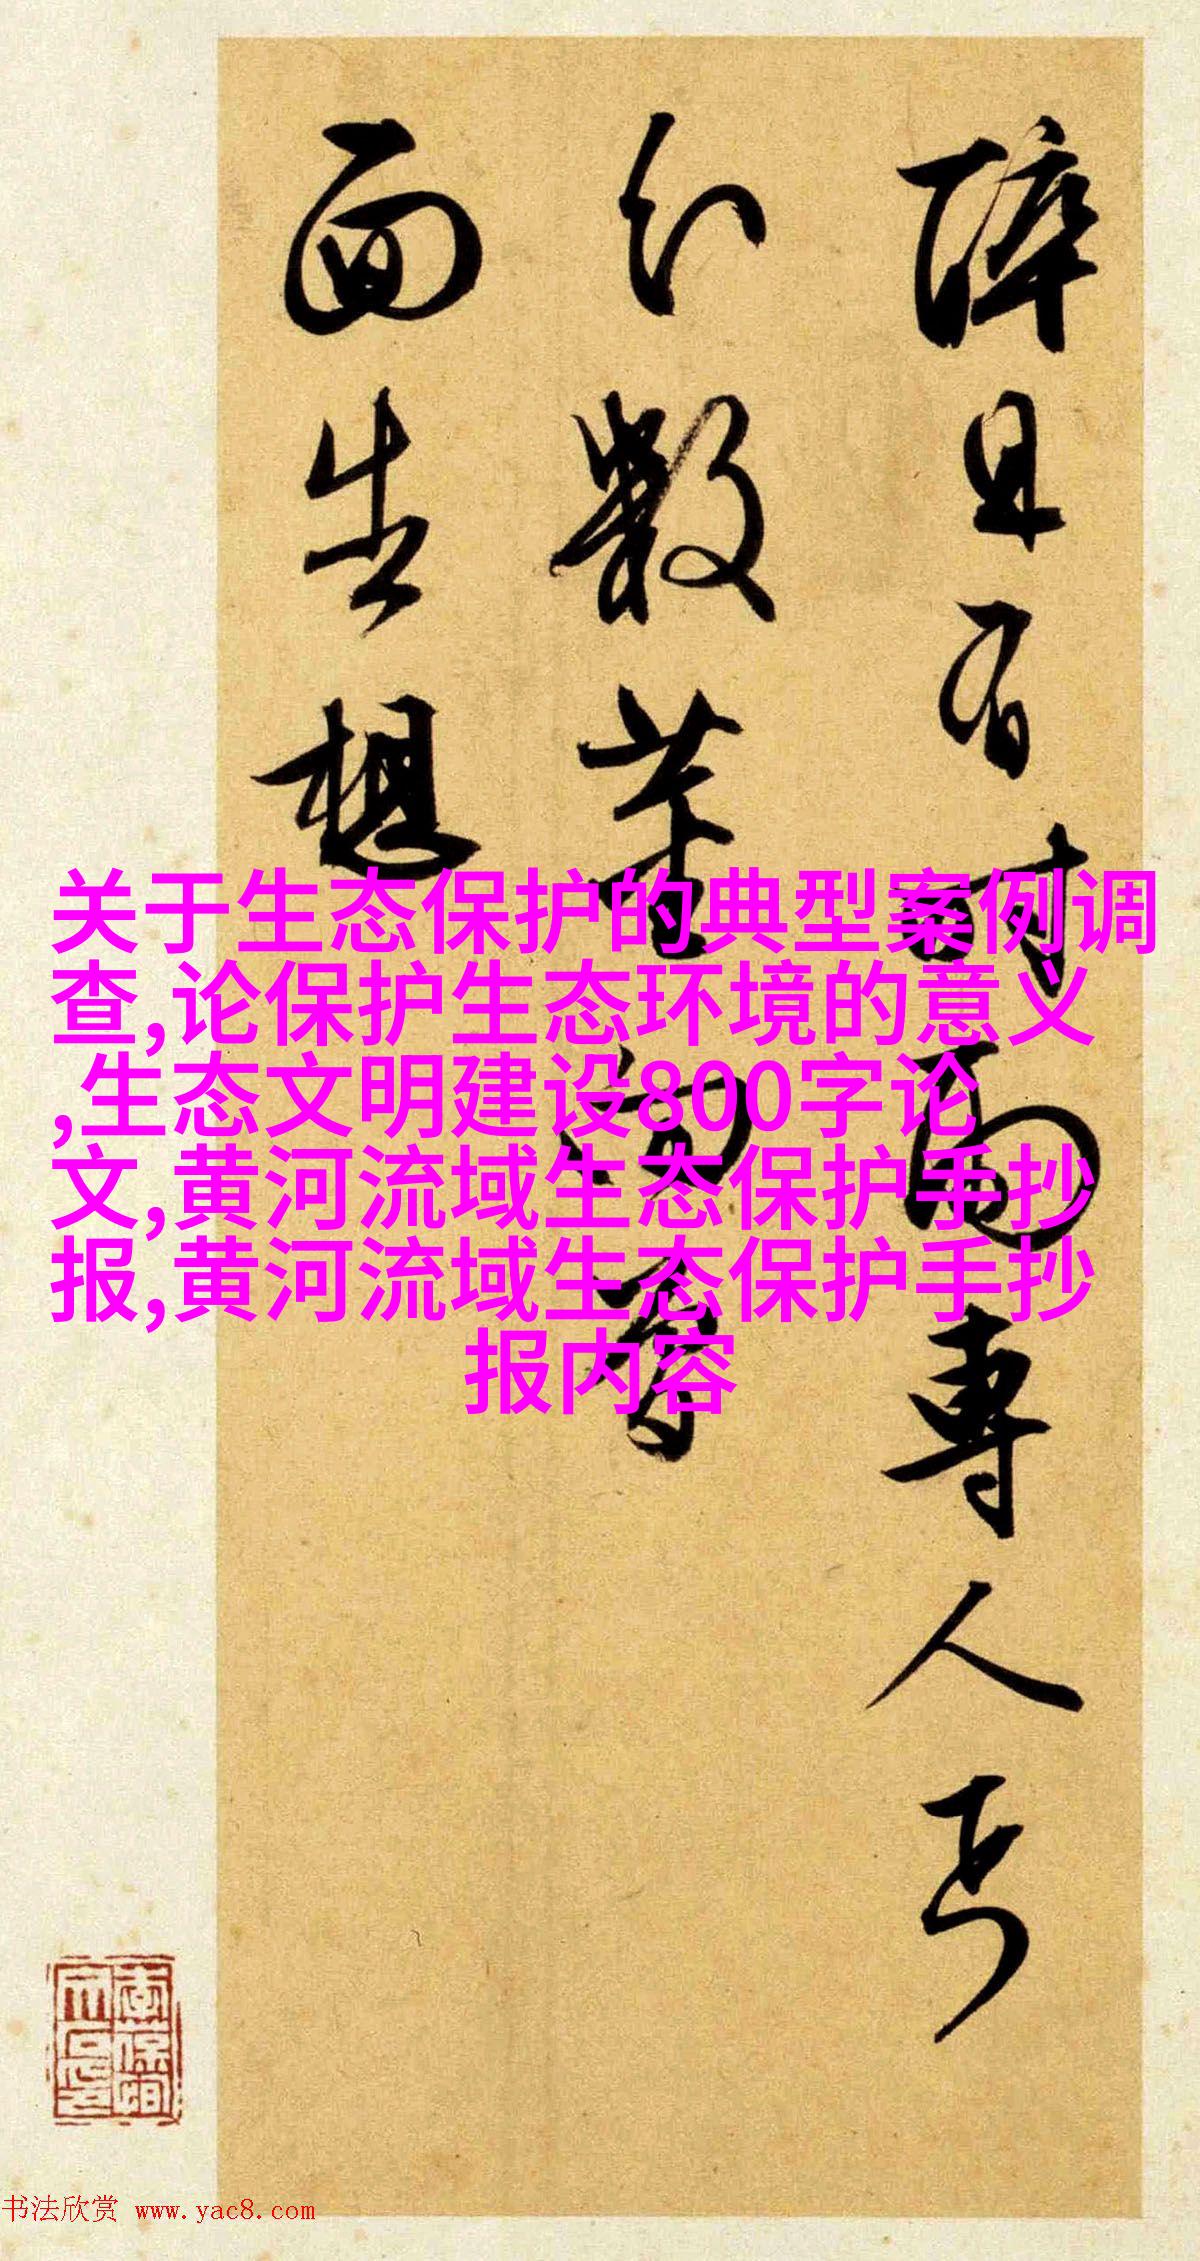 障且有时而专人马
幻数叶
面生想
关于生态保护的典型案例调
查,论保护生态环境的意义
,生态文明建设800字论
文,黄河流域生态保护手抄
报,黄河流域生态保护手抄
报内容
书法欣赏 www.yac8.com